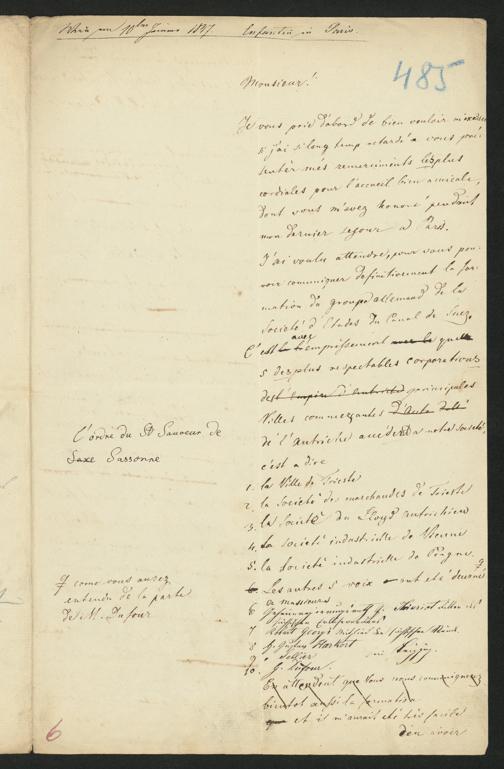 Wien am 10ten Jänner 1847 Enfantin in Paris.
485
Monsieur!
Je vous prie d'abord de bien vouloir m'excuser
si j'ai si long temp retardé a vous pré-
senter mes remerciments les plus
cordiales pour l'accueil bien amicale,
dont vous m'avez honoré pendant
mon dernier sejour a Paris.
J'ai voulu attendre, pour vous pou-
voir comuniquer definitivement la for-
mation du groupe allemand de la
Societé d'Etudes du Canal de Suez.
C'est avec empressement que
5 des plus respectables corporations
principales
Villes commerçantes
de l'Autriche accident a notre Societé,
c'est a dire
1. la Ville de Trieste
2. la Societé de marchandes de Trieste
3. la Societé du Lloyd autrichien
4. la Societé industrielle de Vienne
5. la Societé industrielle de Prague.
Les autres 5 voix ont eté
a messieurs
6
7
8 G. Gustav Harkort
9 " Sellier
10. G. Dufour.
En attendant que vous nous communiquez
bientot aussi la formation
et il m'aurait eté tres facile
d'en avoir
L'ordre du St Sauveur de
Saxe
comme vous aurez
entendu de la parte
de M. Dufour
6